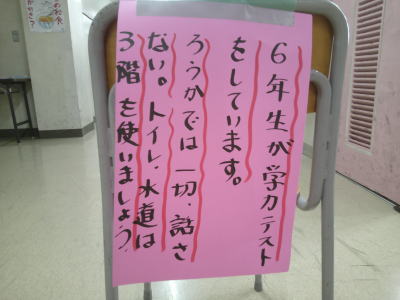 6年生が学力テスト
をしています。
ろうかでは一切、話さ
ない。トイレ、水道は
3階を使いましょう。